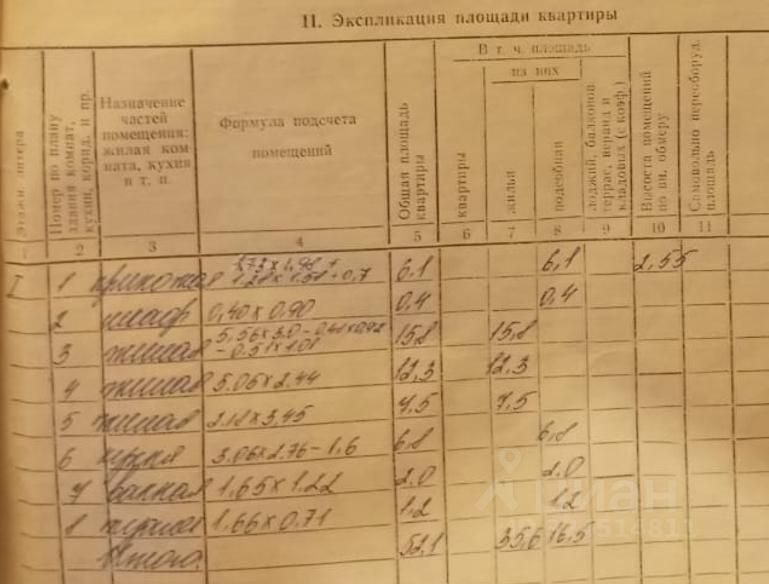 II. Экспликация площади квартиры
Этажи литера
Номер по плану здания комнат, кухни, корид. и пр.
Назначение частей помещения: жилая комната, кухня и т. п.
Формула подсчета помещений
Общая площадь квартиры
В т. ч. площадь
квартиры
из них
жилья
подсобная
лоджий, балконов террас, веранд и кладовых (с коэф.)
Высота помещений по вн. обмеру
Самовольно переоборуд. площадь
1 2 3 4 5 6 7 8 9 10 11
I 1 прихожая 1.28 x 1.51 + 0,7 6.1 6,1 2,55
2 шкаф 0,40 x 0.90 0,4 0,4
3 жилая 5,56 x 3.0 - 0.51 x 1.01 15,8 15,8
4 жилая 5.05 x 2.44 12,3 12.3
5 жилая 2.18 x 3.45 7,5 7,5
6 кухня 3.06 x 2.76 - 1.6 6.8 6,8
7 ванная 1.65 x 1.22 2.0 2.0
8 туалет 1.66 x 0.71 1.2 1.2
Итого 52,1 35,6 16,5
циан